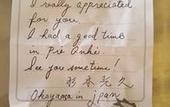 I really appreciated
for you.
I had a good time
in Pré Anhé.
See you sometime!
杉本亮久
Okayama in jpan